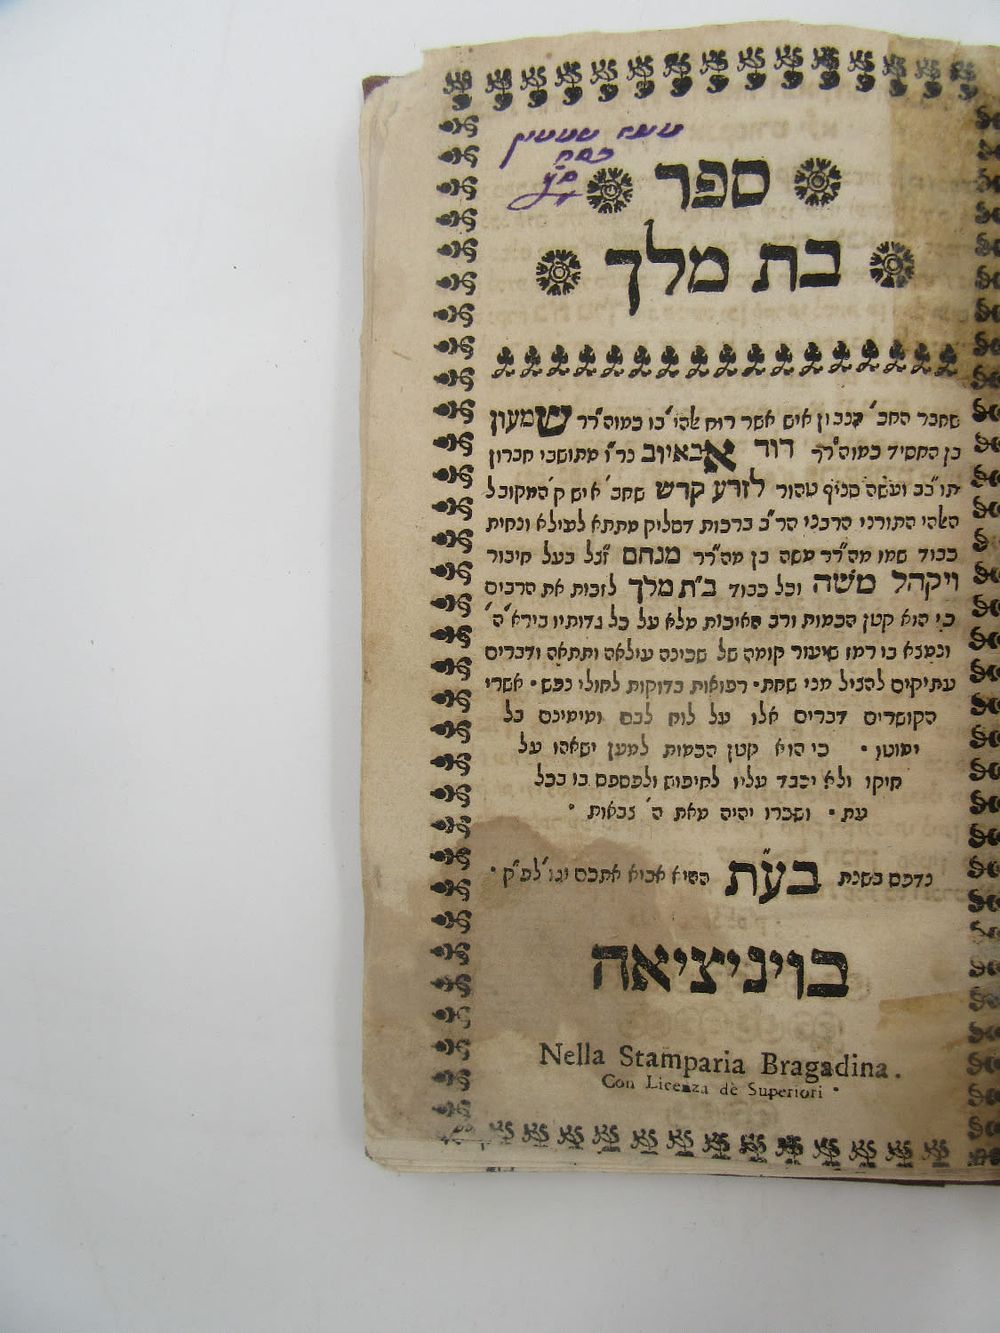 ספר
בת מלך
שחבר החכ' הנבון איש אשר רוח אלהי' בו כמוה"רר שמעון
בן החסיד כמוה"רר דוד אבאיוב נר"ו מתושבי חברון
תו"בב ועשה סניף טהור לזרע קדש שחב' איש ק' המקובל
האלהי התורני הרבני הר"ב ברכות דסליק מתתא לעילא ונחית
כבוד שמו מה"רר משה בן מה"רר מנחם זצל בעל חיבור
ויקהל משה וכל כבוד ב"ת מלך לזכות את הרבים
כי הוא קטן הכמות ורב האיכות מלא על כל גדותיו ביראה'
ונמצא בו רמז שיעור קומה של שכינה עילאה ותתאה ודברים
עתיקים להציל מני שחת • רפואות בדוקות לחולי נפש • אשרי
הקושרים דברים אלו על לוח לבם ומימינם בל
ימוטו • כי הוא קטן הכמות למען ישאהו על
חיקו ולא יכבד עליו לחיפוש ולפספס בו בכל
עת • ושכרו יהיה מאת ה' צבאות •
נדפס בשנת בעת ההיא אביא אתכם וגו' לפ"ק •
בויניציאה
Nella Stamparia Bragadina.
Con Licenza de Superiori •